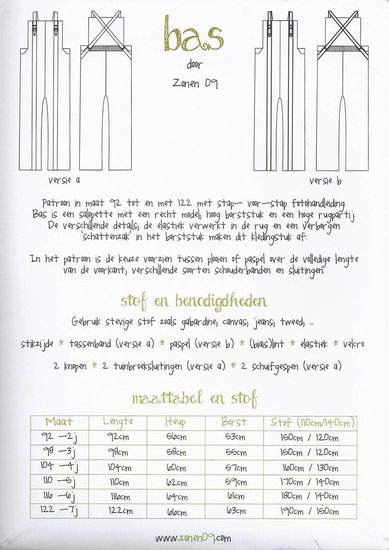 bas
door
Zonen 09
versie a
versie b
Patroon in maat 92 tot en met 122 met stap- voor-stap fotohandleiding.
Bas is een salopette met een recht model, hoog borststuk en een hoge rugpartij.
De verschillende details; de elastiek verwerkt in de rug en een verborgen
'schattenzak' in het borststuk maken dit kledingstuk af.
In het patroon is de keuze voorzien tussen plooien of paspel over de volledige lengte
van de voorkant, verschillende soorten schouderbanden en sluitingen
stof en benodigdheden
Gebruk stevige stof zoals gabardine, canvas, jeans, tweed, ...
stikzijde * tassenband (versie a) * paspel (versie b) * (biais)lint * elastiek * velcro
2 knopen * 2 tuinbroeksluitingen (versie a) * 2 schuifgespen (versie a)
maattabel en stof
Maat Lengte Heup Borst Stof (110cm/140cm)
92 -2j 92cm 56cm 53cm 150cm / 120cm
98 -3j 98cm 58cm 55cm 150cm / 120cm
104 -4j 104cm 60cm 57cm 160cm / 130cm
110 -5j 110cm 62cm 59cm 170cm / 140cm
116 -6j 116cm 64cm 61cm 180cm / 140cm
122 -7j 122cm 66cm 63cm 190cm / 150cm
www.zonen09.com